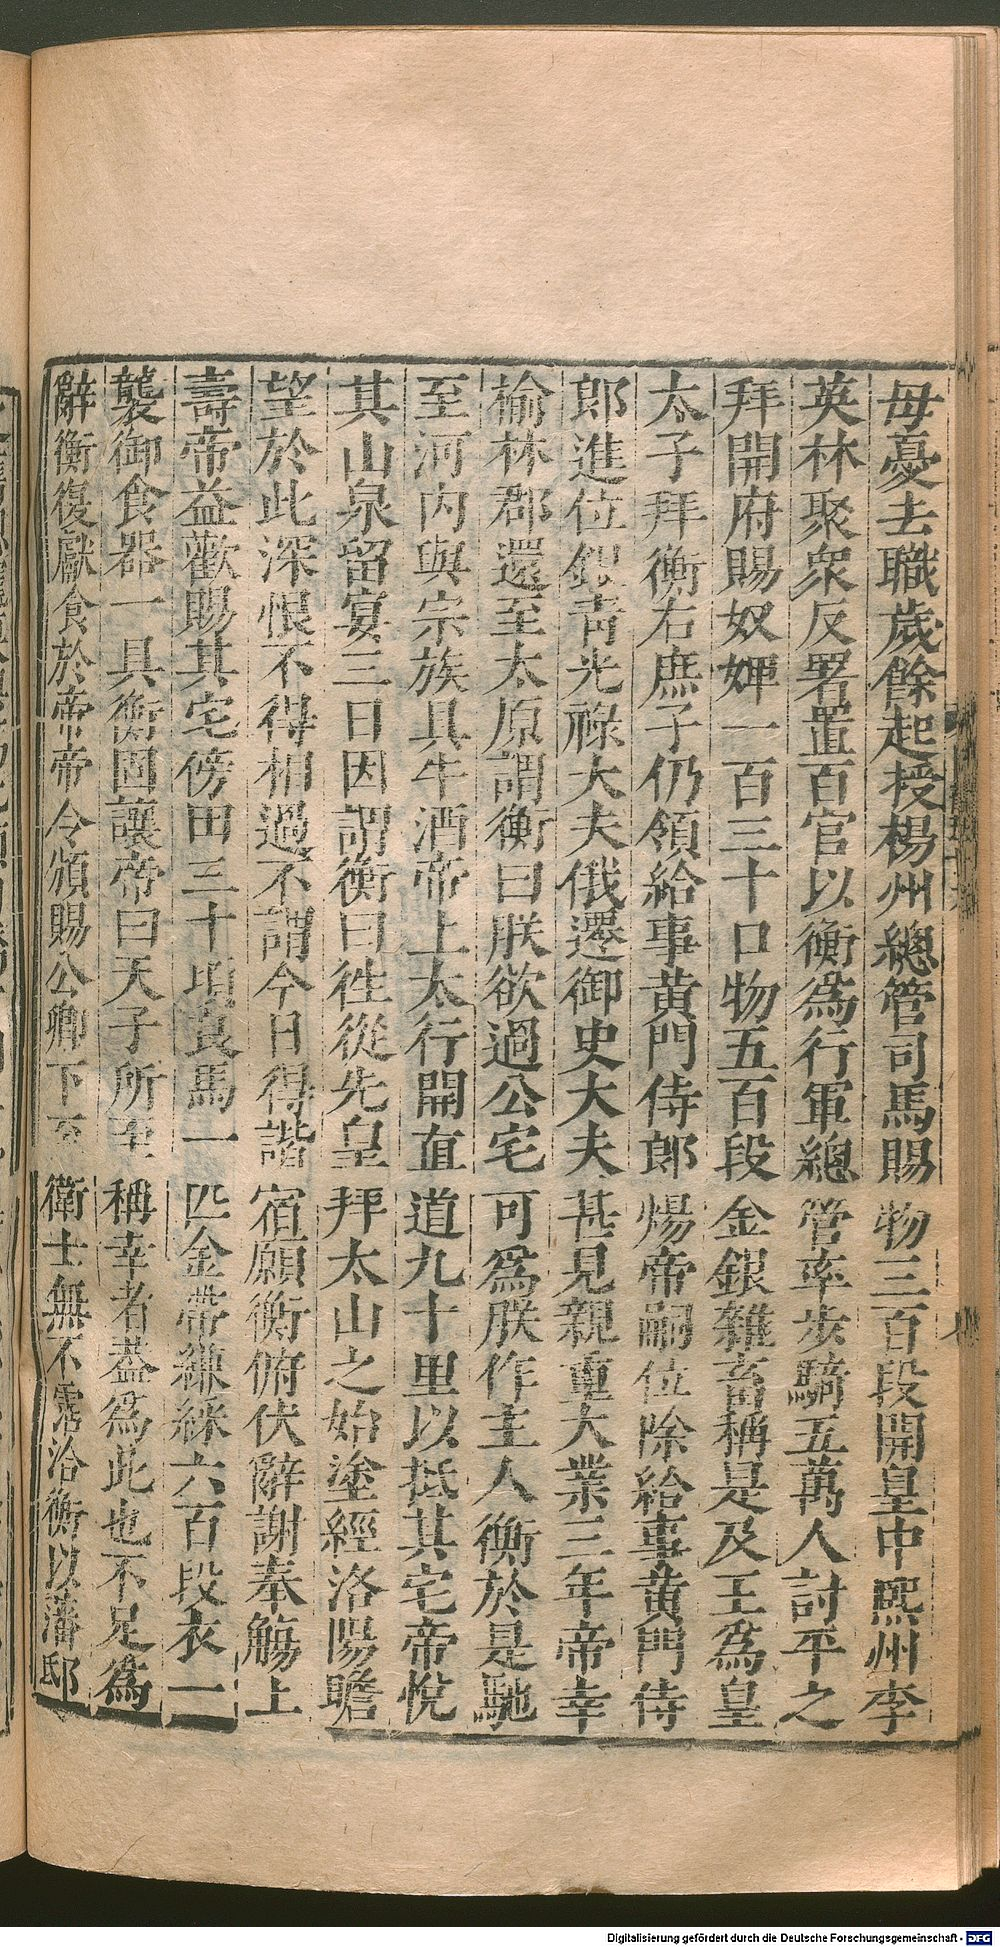 母憂去職歲餘起授楊州總管司馬賜物三百段開皇中熈州李
英林聚衆反署置百官以衡爲行軍總管率步騎五萬人討平之
拜開府賜奴婢一百三十口物五百段金銀雜畜稱是及王爲皇
太子拜衡右庶子仍領給事黃門侍郎煬帝嗣位除給事黃門侍
郎進位銀青光祿大夫俄遷御史大夫甚見親重大業三年帝幸
榆林郡還至太原謂衡曰朕欲過公宅可爲朕作主人衡於是馳
至河内與宗族具牛酒帝上太行開直道九十里以抵其宅帝悅
其山泉留宴三日因謂衡曰徃從先皇拜太山之始塗經洛陽瞻
望於此深恨不得相過不謂今日得諧宿願衡俯伏辭謝奉觴上
壽帝益歡賜其宅傍田三十頃良馬一匹金帶縑綵六百段衣一
襲御食器一具衡固讓帝曰天子所至稱幸者葢爲此也不足爲
辭衡復獻食於帝帝令頒賜公卿下至衛士無不霑洽衡以藩邸
Digitalisierung gefördert durch die Deutsche Forschungsgemeinschaft - DFG